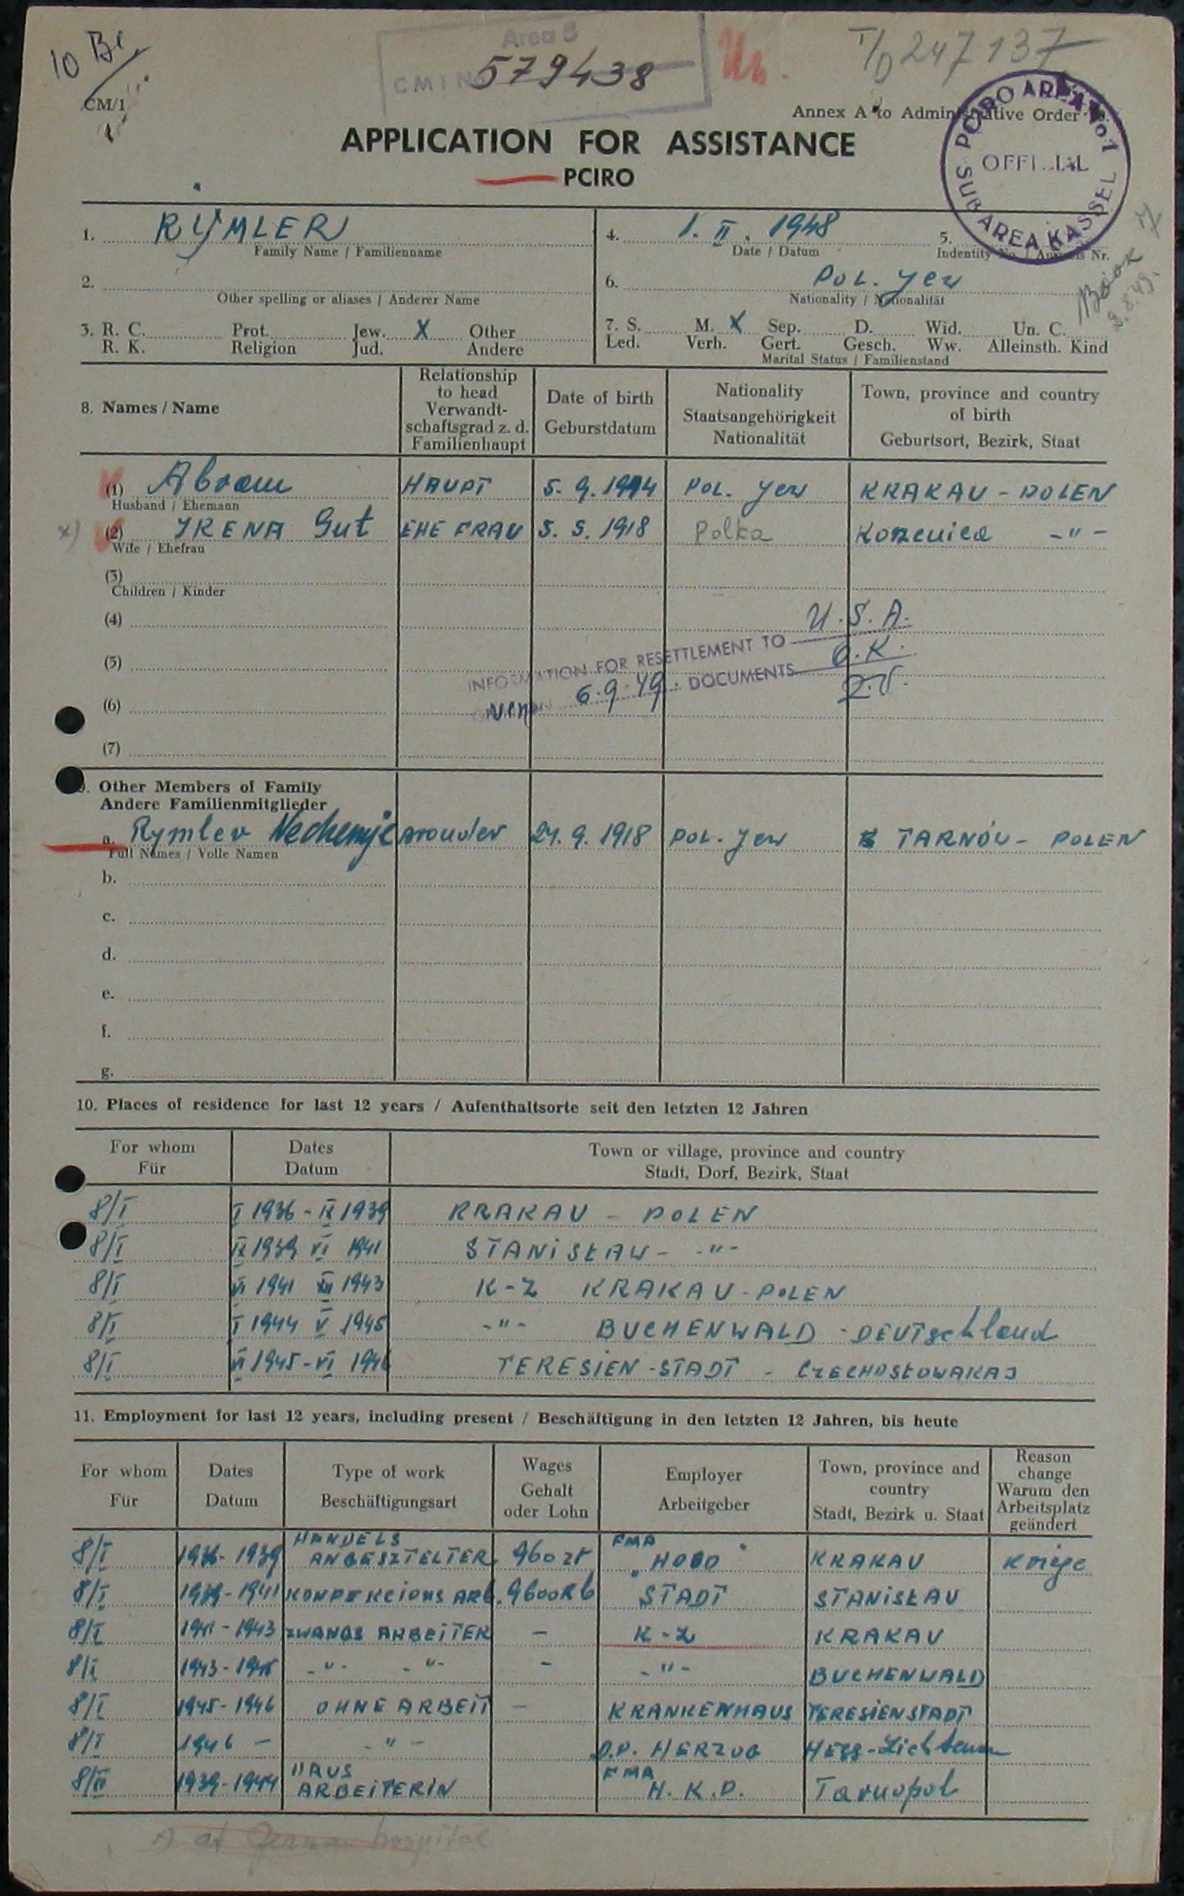 10 Br.
Area 5
CM1 No 579438
T/D 247137
CM/1
Annex A to Administrative Order No.
PCIRO AREA No. 1
OFFICIAL
SUB AREA KASSEL
APPLICATION FOR ASSISTANCE
PCIRO
1. RYMLER
Family Name / Familienname
4. 1. II. 1948
Date / Datum
5.
Indentity No. / Ausweis Nr.
Book 7
2.
Other spelling or aliases / Anderer Name
6. POL. Jew
Nationality / Nationalität
3. R. C. Prot. Jew. X Other
R. K. Religion Jud. Andere
7. S. M. X Sep. D. Wid. Un. C.
Led. Verh. Gert. Gesch. Ww. Alleinsth. Kind
Marital Status / Familienstand
8. Names / Name
Relationship to head Verwandt-schaftsgrad z. d. Familienhaupt
Date of birth Geburstdatum
Nationality Staatsangehörigkeit Nationalität
Town, province and country of birth Geburtsort, Bezirk, Staat
(1) Abram HAUPT 5. 9. 1914 POL. Jew KRAKAU - POLEN
Husband / Ehemann
x) (2) IRENA Gut EHE FRAU 5. 5. 1918 Polka Kozenice -"-
Wife / Ehefrau
(3)
Children / Kinder
(4)
(5)
(6)
(7)
INFORMATION FOR RESETTLEMENT TO U.S.A.
6.9.49. DOCUMENTS O.K.
9. Other Members of Family
Andere Familienmitglieder
a. Rymler Nechemje Brouder 24. 9. 1918 POL. Jew TARNÓW - POLEN
Full Names / Volle Namen
b.
c.
d.
e.
f.
g.
10. Places of residence for last 12 years / Aufenthaltsorte seit den letzten 12 Jahren
For whom Für
Dates Datum
Town or village, province and country Stadt, Dorf, Bezirk, Staat
8/I I 1936 - IX 1939 KRAKAU - POLEN
8/I IX 1939 VI 1941 STANISŁAW - -"-
8/I VI 1941 XII 1943 K-Z KRAKAU - POLEN
8/I I 1944 V 1945 -"- BUCHENWALD - DEUTschland
8/I VI 1945 - VI 1946 TERESIEN-STADT - CZECHOSŁOWAKAJ
11. Employment for last 12 years, including present / Beschäftigung in den letzten 12 Jahren, bis heute
For whom Für
Dates Datum
Type of work Beschäftigungsart
Wages Gehalt oder Lohn
Employer Arbeitgeber
Town, province and country Stadt, Bezirk u. Staat
Reason change Warum den Arbeitsplatz geändert
8/I 1936 - 1939 HANDELS ANGESZTELTER 960 zł FMA "HOBO" KRAKAU Kriege
8/I 1939 - 1941 KONFEKCIONS ARB. 9600 Rb STADT STANISŁAU
8/I 1941 - 1943 ZWANGS ARBEITER - K-Z KRAKAU
8/I 1943 - 1945 -"- -"- - -"- BUCHENWALD
8/I 1945 - 1946 OHNE ARBEIT - KRANKENHAUS TERESIENSTADT
8/I 1946 - -"- D.P. HERZOG HESS-Lichtenau
8/II 1939 - 1944 HAUS ARBEITERIN FMA H. K. P. Tarnopol
A at German hospital